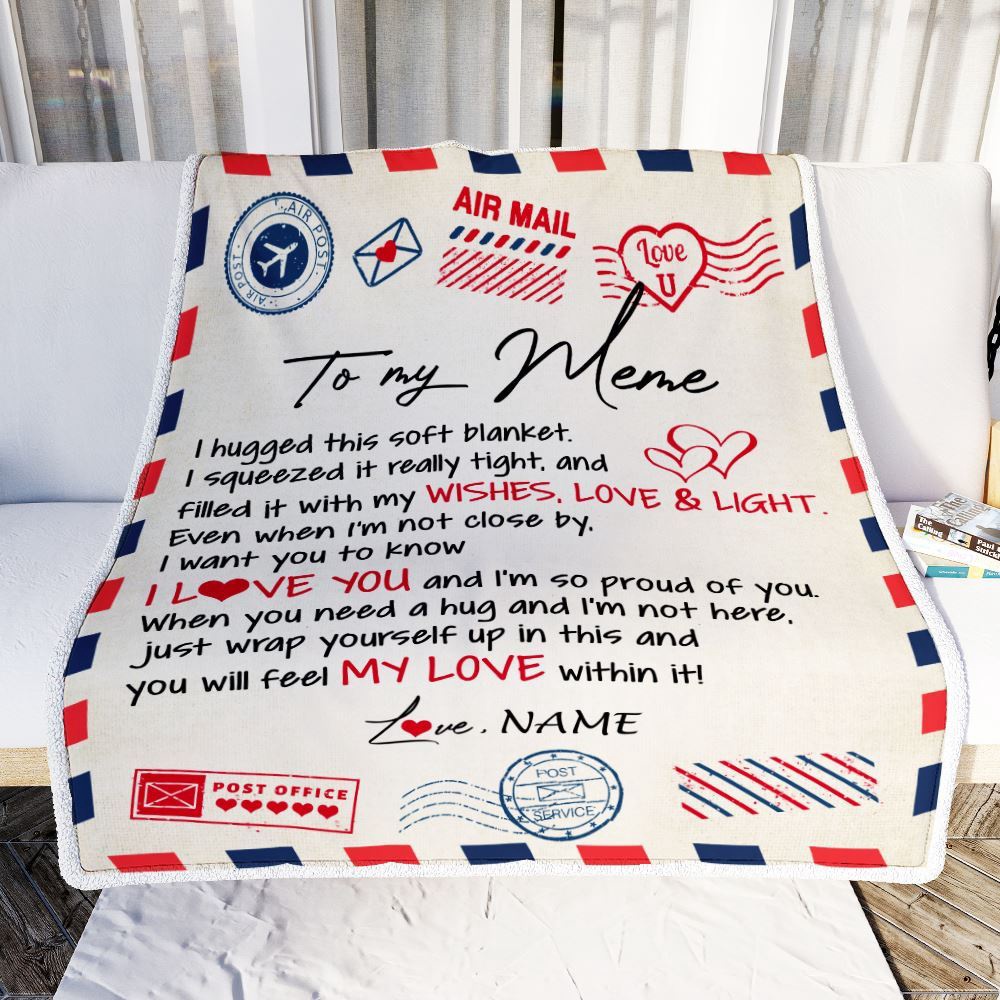 AIR POST
AIR POST
AIR MAIL
Love
U
To my Meme
I hugged this soft blanket.
I squeezed it really tight, and
filled it with my WISHES, LOVE & LIGHT.
Even when I'm not close by,
I want you to know
I L❤VE YOU and I'm so proud of you.
When you need a hug and I'm not here,
just wrap yourself up in this and
you will feel MY LOVE within it!
L❤ve, NAME
POST OFFICE
POST
SERVICE
The
Calling
Paul